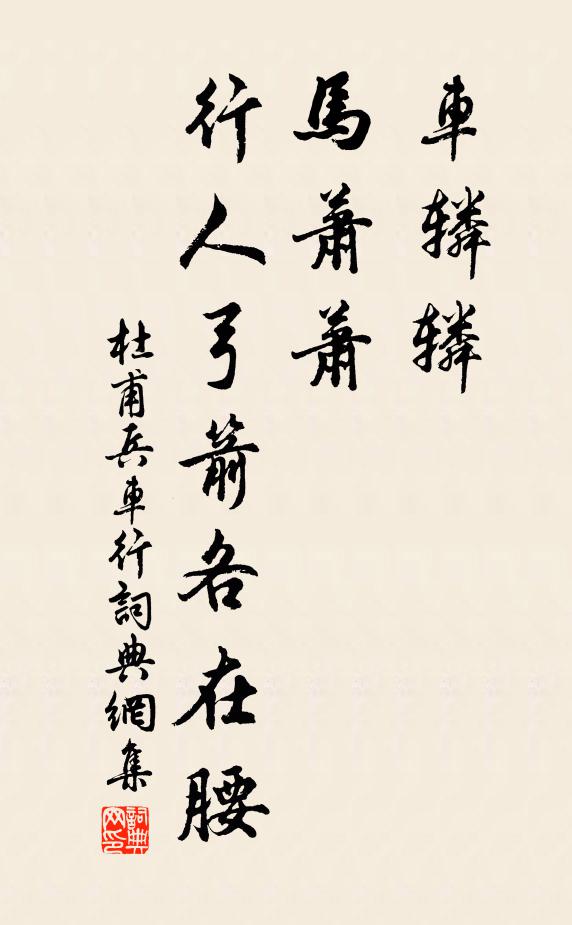 車辚辚
馬蕭蕭
行人弓箭各在腰
杜甫兵車行詞典網集
詞典
网印